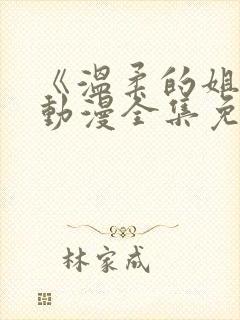 《温柔的姐
动漫全集免
林家成